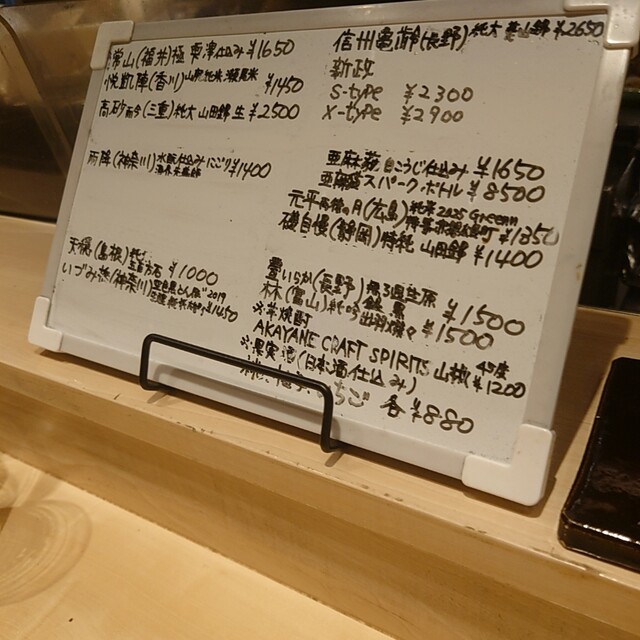 常山(福井)極 東津仕込み ¥1650
悦凱陣(香川)山廃純米 ¥1450
高砂而今(三重)純大 山田錦 生 ¥2500
雨降(神奈川)水酛仕込みにごり ¥1400
天穏(島根)純吟 ¥1000
いづみ橋(神奈川) 2019 ¥1450
信州亀齢(長野)純大 美山錦 ¥2650
新政
S-type ¥2300
X-type ¥2900
亜麻猫 白こうじ仕込み ¥1650
亜麻猫スパークボトル ¥8500
(広島)純米 2025 Green ¥1350
磯自慢(静岡)特純 山田錦 ¥1400
豊いらか(長野) 生原 ¥1500
林(富山)純吟 出羽燦々 ¥1500
※芋焼酎
AKAYANE CRAFT SPIRITS 山椒 45度 ¥1200
※果実酒(日本酒仕込み)
いちご 各¥880